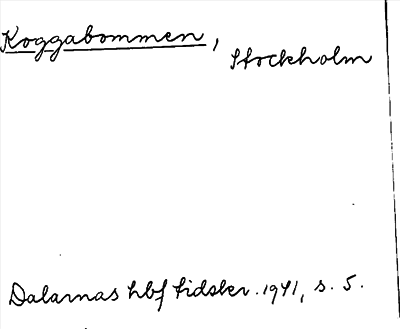 Koggabommen,
Stockholm
Dalarnas hbf tidskr. 1941, s. 5.